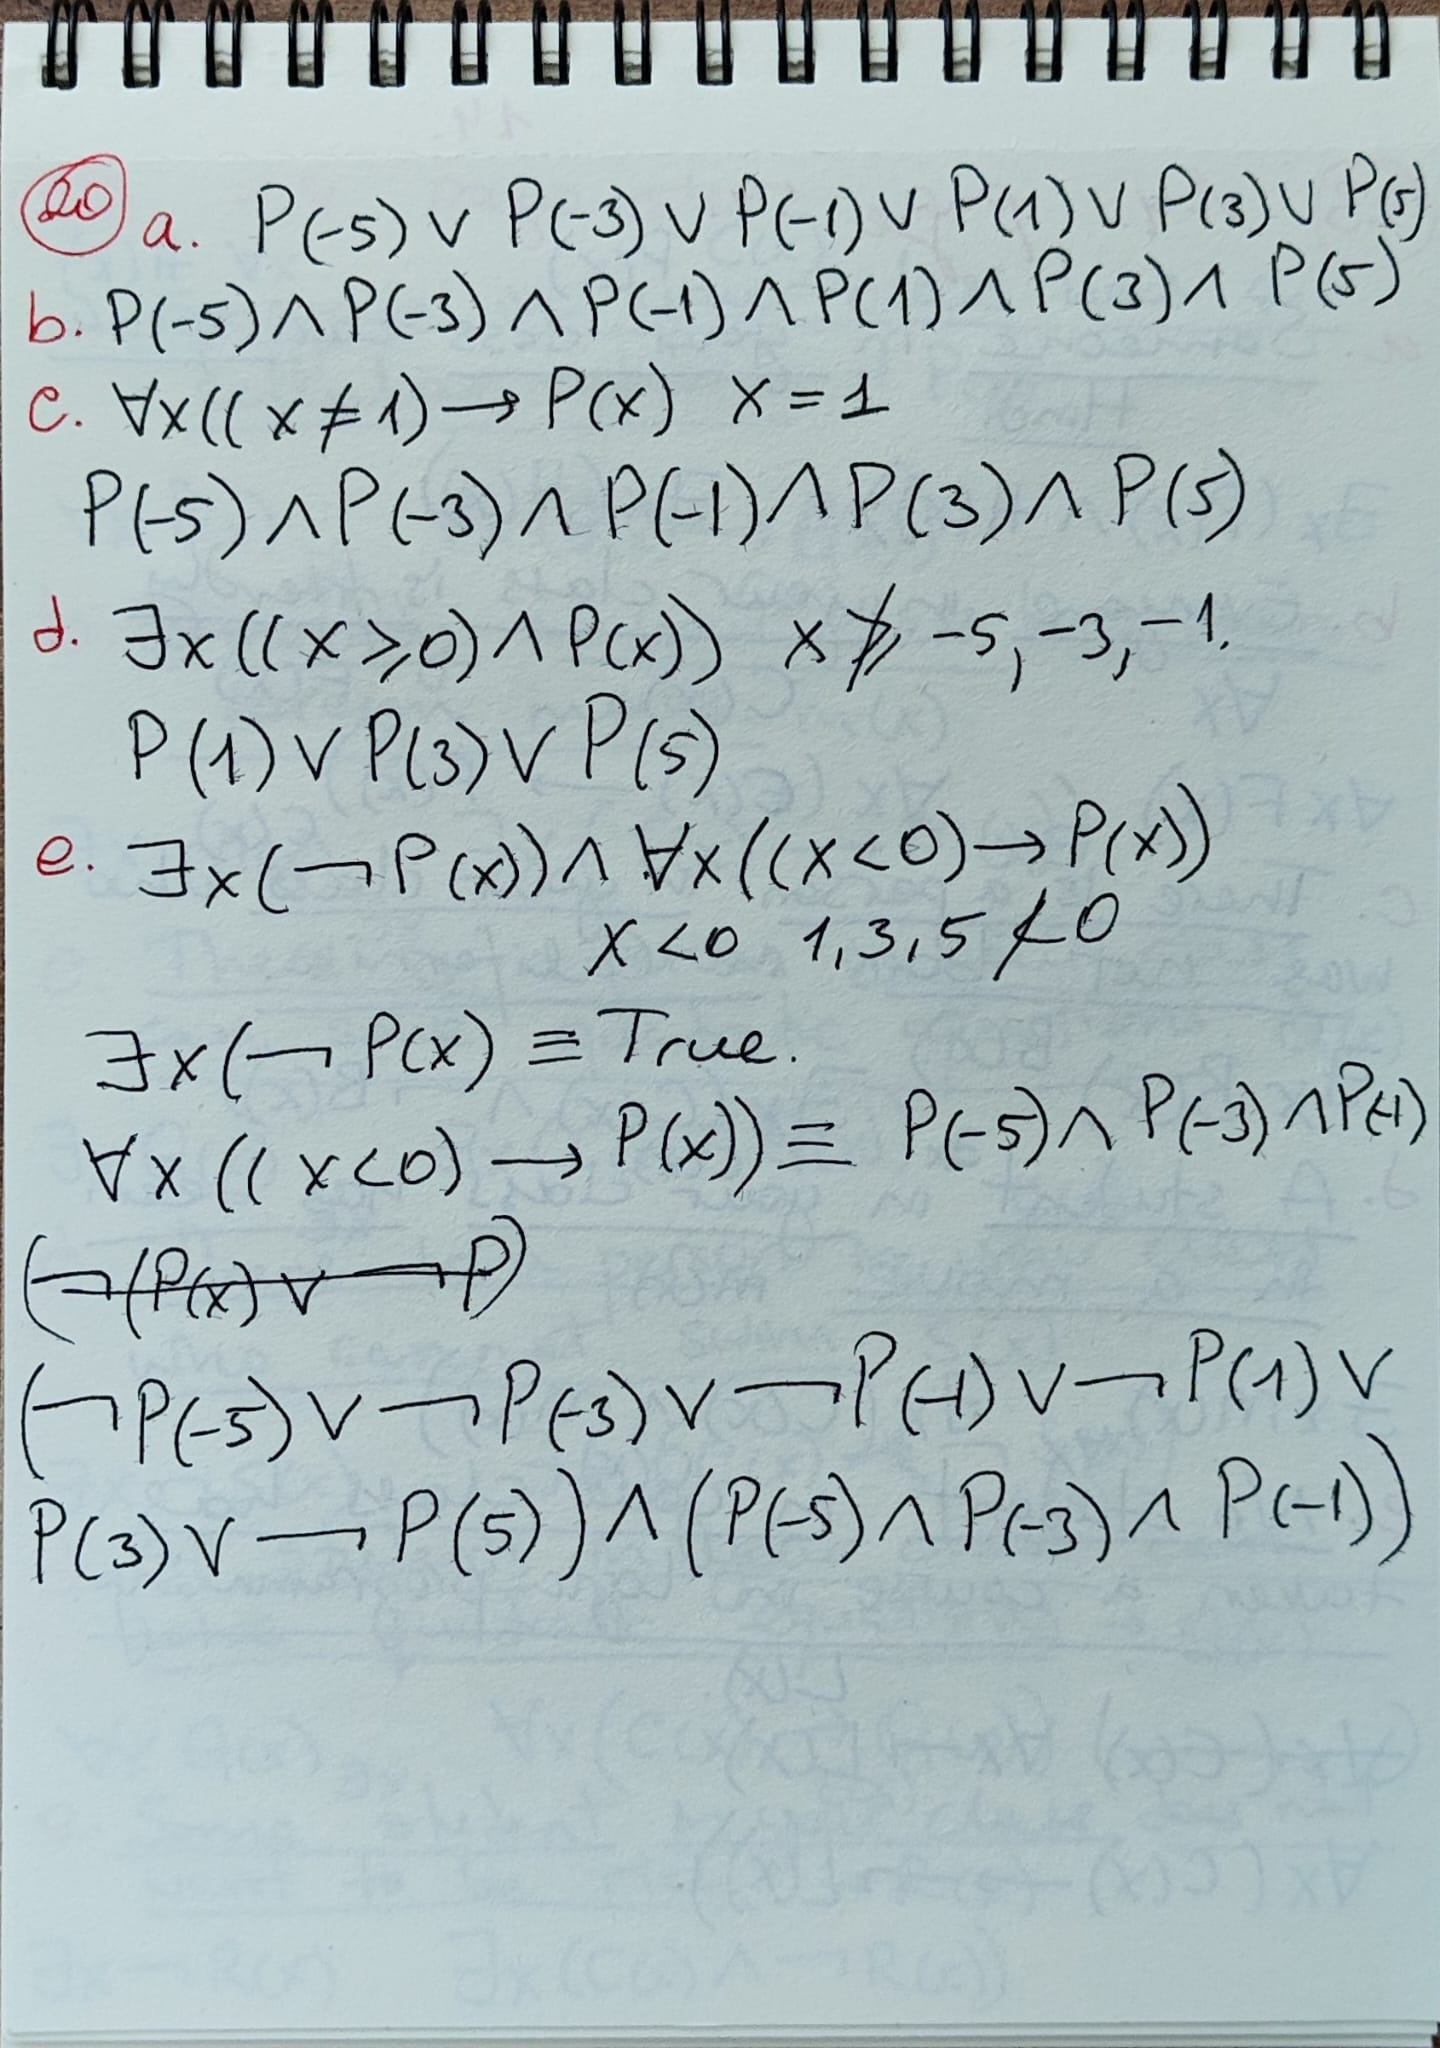 20 a. P(-5) ∨ P(-3) ∨ P(-1) ∨ P(1) ∨ P(3) ∨ P(5)
b. P(-5) ∧ P(-3) ∧ P(-1) ∧ P(1) ∧ P(3) ∧ P(5)
c. ∀x((x ≠ 1) → P(x) x = 1
P(-5) ∧ P(-3) ∧ P(-1) ∧ P(3) ∧ P(5)
d. ∃x((x ⩾ 0) ∧ P(x)) x ⩾̸ -5, -3, -1.
P(1) ∨ P(3) ∨ P(5)
e. ∃x(¬P(x)) ∧ ∀x((x < 0) → P(x))
x < 0 1, 3, 5 ≮ 0
∃x(¬P(x) ≡ True.
∀x((x < 0) → P(x)) ≡ P(-5) ∧ P(-3) ∧ P(-1)
(¬(P(x) ∨ ¬P)
(¬P(-5) ∨ ¬P(-3) ∨ ¬P(-1) ∨ ¬P(1) ∨
P(3) ∨ ¬P(5)) ∧ (P(-5) ∧ P(-3) ∧ P(-1))